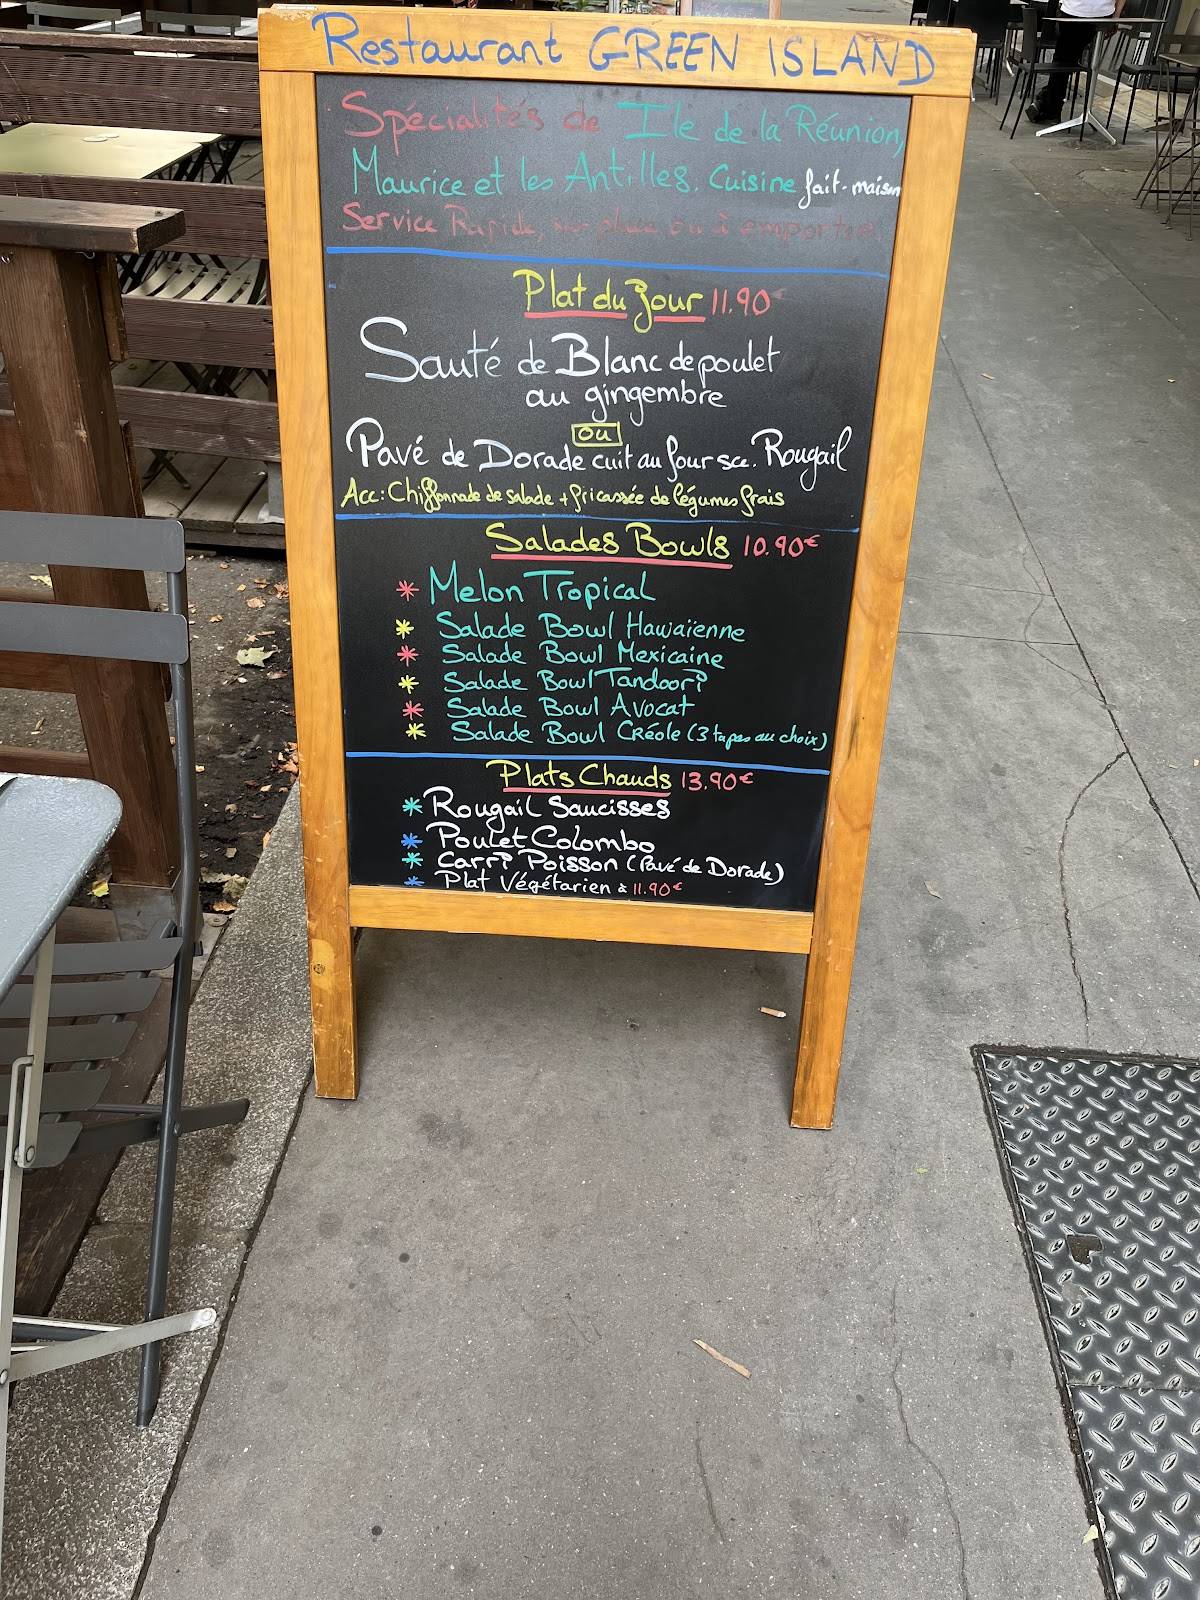 Restaurant GREEN ISLAND
Spécialités de Ile de la Réunion,
Maurice et les Antilles. Cuisine fait-maison
Service Rapide, sur place ou à emporter.
Plat du Jour 11.90€
Sauté de Blanc de poulet
au gingembre
ou
Pavé de Dorade cuit au four sce. Rougail
Acc: Chiffonnade de salade + fricassée de légumes frais
Salades Bowls 10.90€
* Melon Tropical
* Salade Bowl Hawaïenne
* Salade Bowl Mexicaine
* Salade Bowl Tandoori
* Salade Bowl Avocat
* Salade Bowl Créole (3 tapas au choix)
Plats Chauds 13.90€
* Rougail Saucisses
* Poulet Colombo
* Carri Poisson (Pavé de Dorade)
* Plat Végétarien à 11.90€